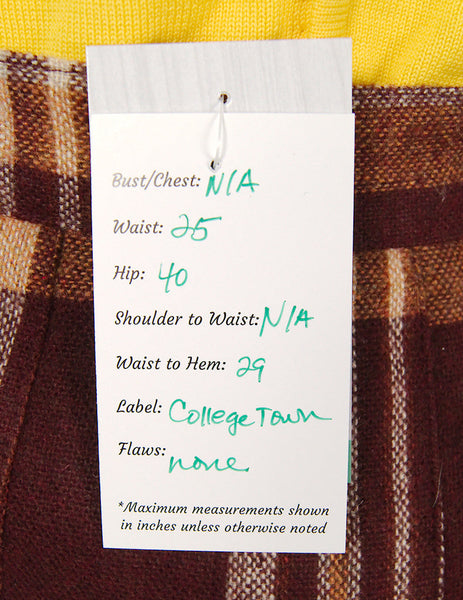 Bust/Chest: N/A
Waist: 25
Hip: 40
Shoulder to Waist: N/A
Waist to Hem: 29
Label: College Town
Flaws: none
*Maximum measurements shown
in inches unless otherwise noted